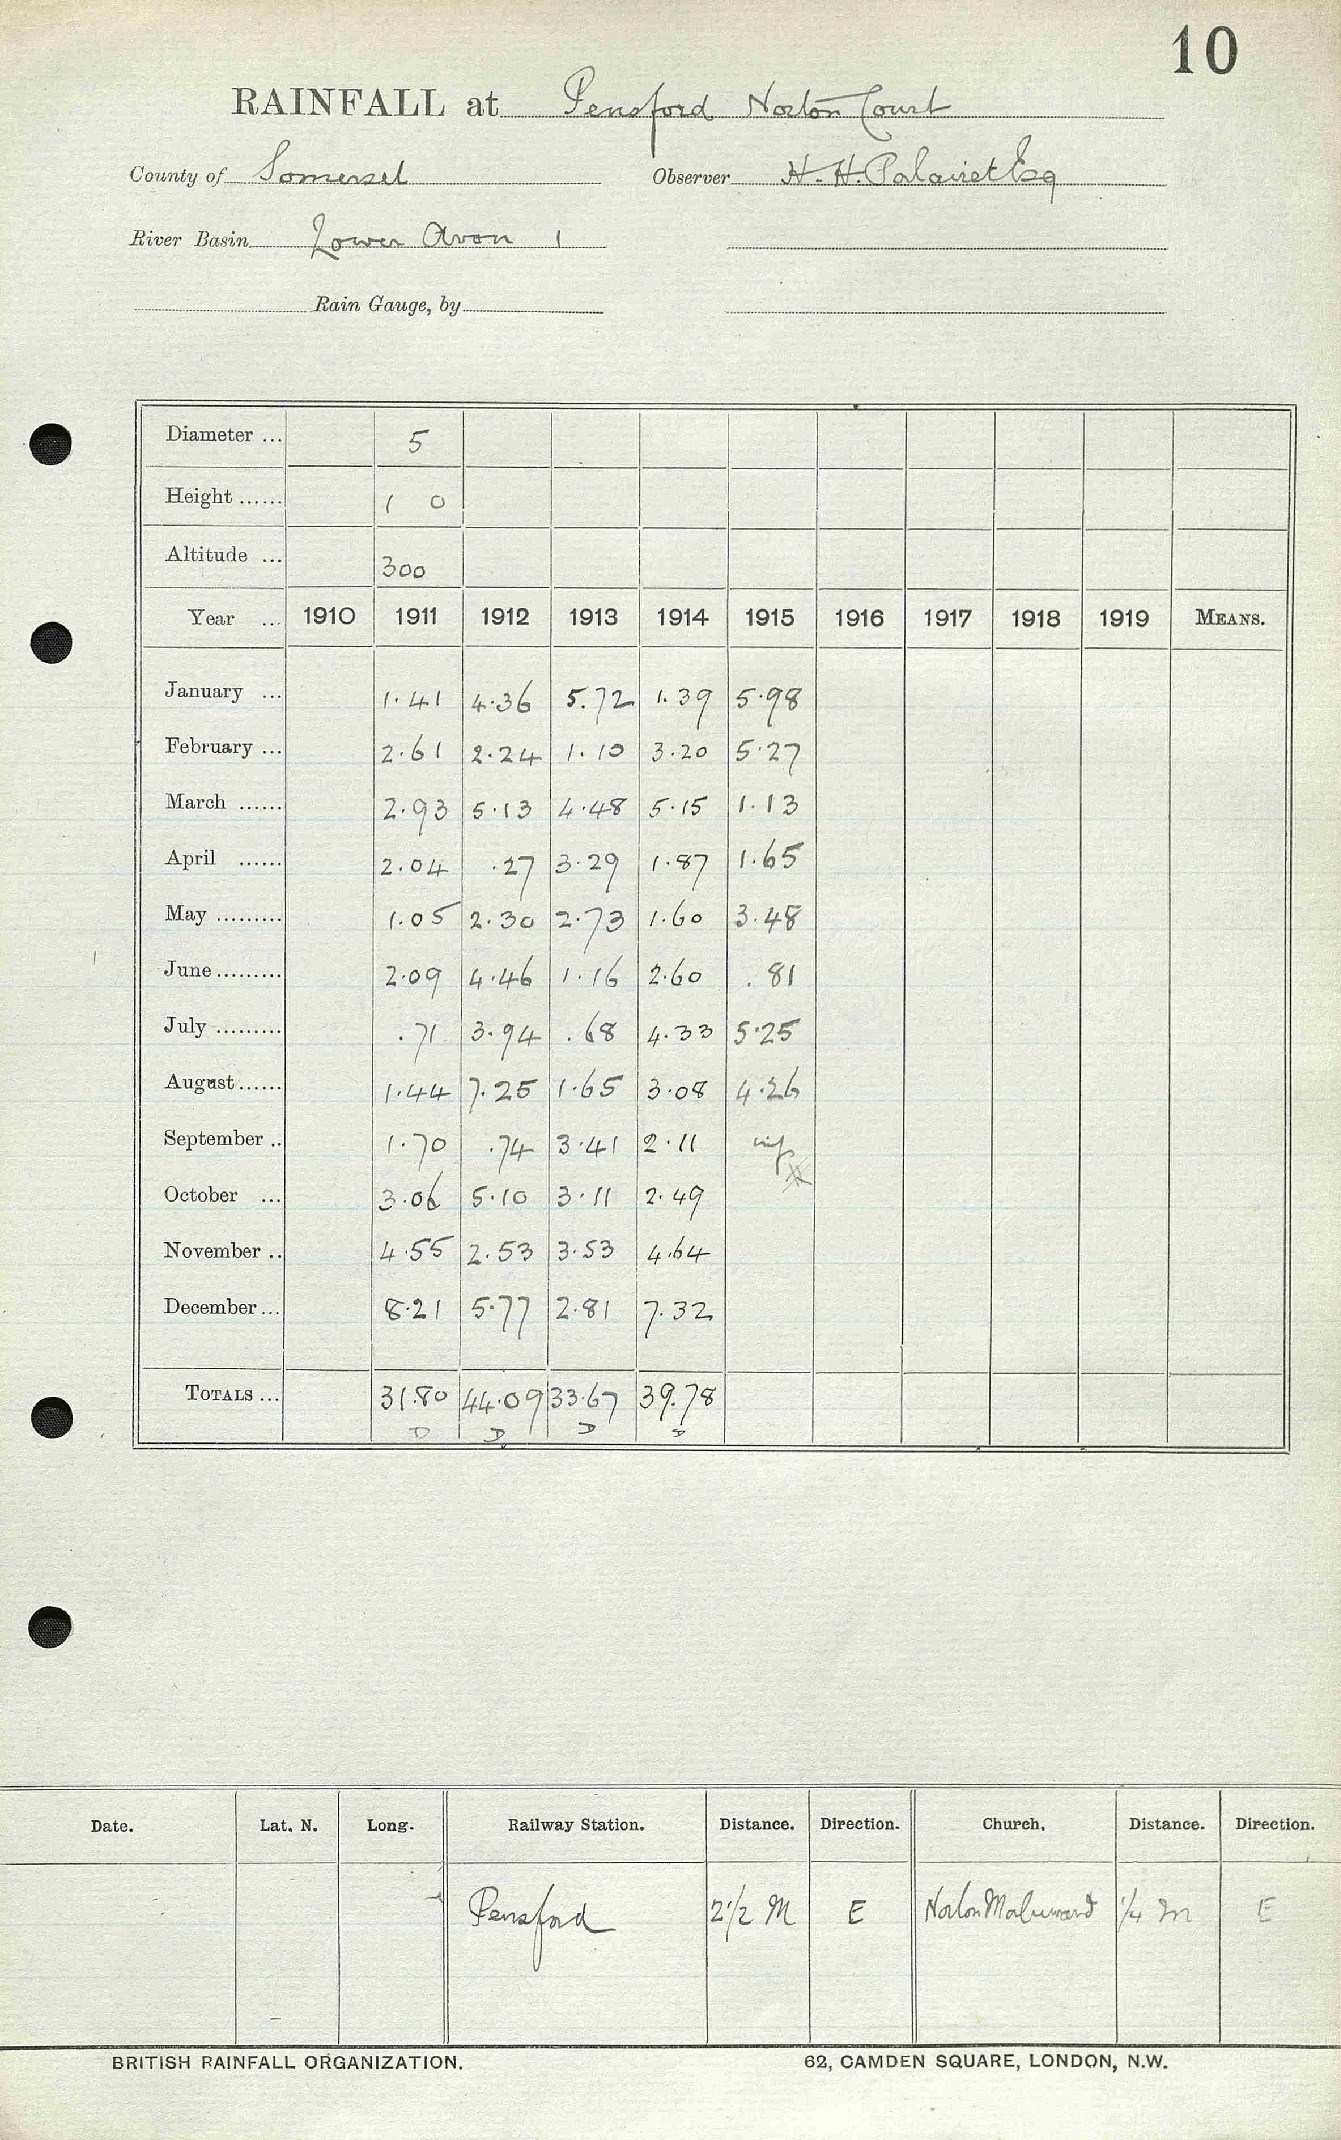 10
RAINFALL at Pensford Norton Court
County of Somerset Observer H. H. Palairet Esq
River Basin Lower Avon 1
Rain Gauge, by
Diameter ... 5
Height ...... 1 0
Altitude ... 300
Year ... 1910 1911 1912 1913 1914 1915 1916 1917 1918 1919 MEANS.
January ... 1.41 4.36 5.72 1.39 5.98
February ... 2.61 2.24 1.10 3.20 5.27
March ...... 2.93 5.13 4.48 5.15 1.13
April ...... 2.04 .27 3.29 1.87 1.65
May ......... 1.05 2.30 2.73 1.60 3.48
June ......... 2.09 4.46 1.16 2.60 .81
July ......... .71 3.94 .68 4.33 5.25
August ...... 1.44 7.25 1.65 3.08 4.26
September .. 1.70 .74 3.41 2.11
October ... 3.06 5.10 3.11 2.49
November .. 4.55 2.53 3.53 4.64
December ... 8.21 5.77 2.81 7.32
TOTALS ... 31.80 44.09 33.67 39.78
D D D D
Date. Lat. N. Long. Railway Station. Distance. Direction. Church. Distance. Direction.
Pensford 2 1/2 M E Norton Malreward 1/4 m E
BRITISH RAINFALL ORGANIZATION. 62, CAMDEN SQUARE, LONDON, N.W.